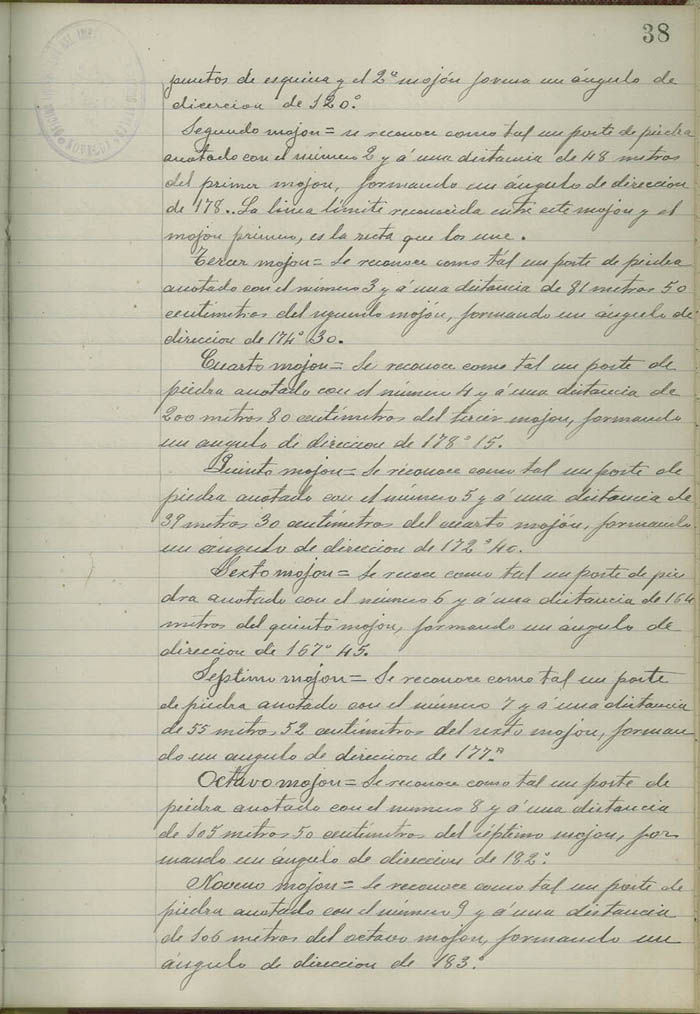 38
puntos de esquina y el 2º mojón forma un ángulo de
dicercion de 120º
Segundo mojon = se reconoce como tal un poste de piedra
anotado con el número 2 y á una distancia de 48 metros
del primer mojon, formando un ángulo de dirección
de 178.. La linea límite reconocida entre este mojon y el
mojon primero, es la recta que los une.
Tercer mojon = Se reconoce como tal un poste de piedra
anotado con el número 3 y á una distancia de 81 metros 50
centimetros del segundo mojón, formando un ángulo de
direccion de 174º 30.
Cuarto mojon = Se reconoce como tal un poste de
piedra anotado con el número 4 y á una distancia de
200 metros 80 centímetros del tercer mojon, formando
un angulo de direccion de 178º 15.
Quinto mojon = Se reconoce como tal un poste de
piedra anotado con el número 5 y á una distancia de
39 metros 30 centímetros del cuarto mojón, formando
un ángulo de direccion de 172º 40.
Sexto mojon = Se recoce como tal un poste de pie
dra anotado con el número 6 y á una distancia de 164
metros del quinto mojon, formando un ángulo de
direccion de 167º 45.
Septimo mojon = Se reconoce como tal un poste
de piedra anotado con el número 7 y á una distancia
de 55 metros 52 centímetros del sexto mojon, forman
do un angulo de direccion de 177.º
Octavo mojon = Se reconoce como tal un poste de
piedra anotado con el número 8 y á una distancia
de 105 metros 50 centímetros del séptimo mojon, for
mando un ángulo de direccion de 182º.
Noveno mojon = Se reconoce como tal un poste de
piedra anotado con el número 9 y á una distancia
de 106 metros del octavo mojon, formando un
ángulo de direccion de 183.º